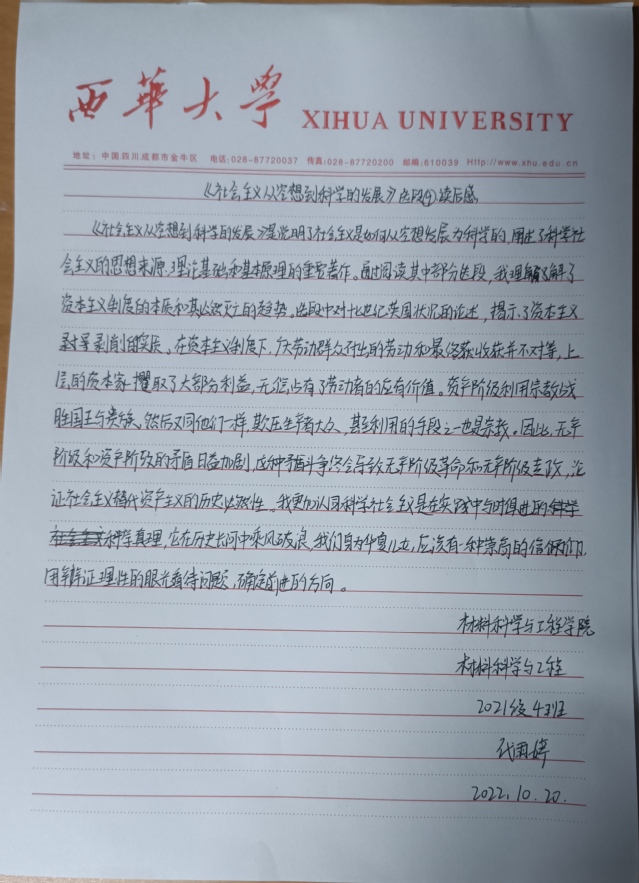 西華大学 XIHUA UNIVERSITY
地址：中国四川成都市金牛区 电话:028-87720037 传真:028-87720200 邮编:610039 Http://www.xhu.edu.cn
《社会主义从空想到科学的发展》选段(9)读后感
《社会主义从空想到科学的发展》是说明了社会主义是如何从空想发展为科学的,阐述了科学社
会主义的思想来源、理论基础和基本原理的重要著作。通过阅读其中部分选段,我理解了
资本主义制度的本质和其必然灭亡的趋势。选段中对十七世纪英国状况的论述,揭示了资本主义
剥削的实质。在资本主义制度下,广大劳动群众付出的劳动和最终获收获并不对等,上
层的资本家攫取了大部分利益,无偿占有了劳动者的应有价值。资产阶级利用宗教战
胜国王与贵族,然后又同他们一样,欺压生产者大众,甚至利用的手段之一也是宗教。因此,无产
阶级和资产阶级的矛盾日益加剧,这种矛盾斗争终会导致无产阶级革命和无产阶级专政,论
证社会主义替代资产主义的历史必然性。我更加认同科学社会主义是在实践中与时俱进的
科学真理,它在历史长河中乘风破浪,我们身为华夏儿女,应该有一种崇高的信仰,
用辩证理性的眼光看待问题,确定前进的方向。
材料科学与工程学院
材料科学与工程
2021级4班
代雨婷
2022.10.20.